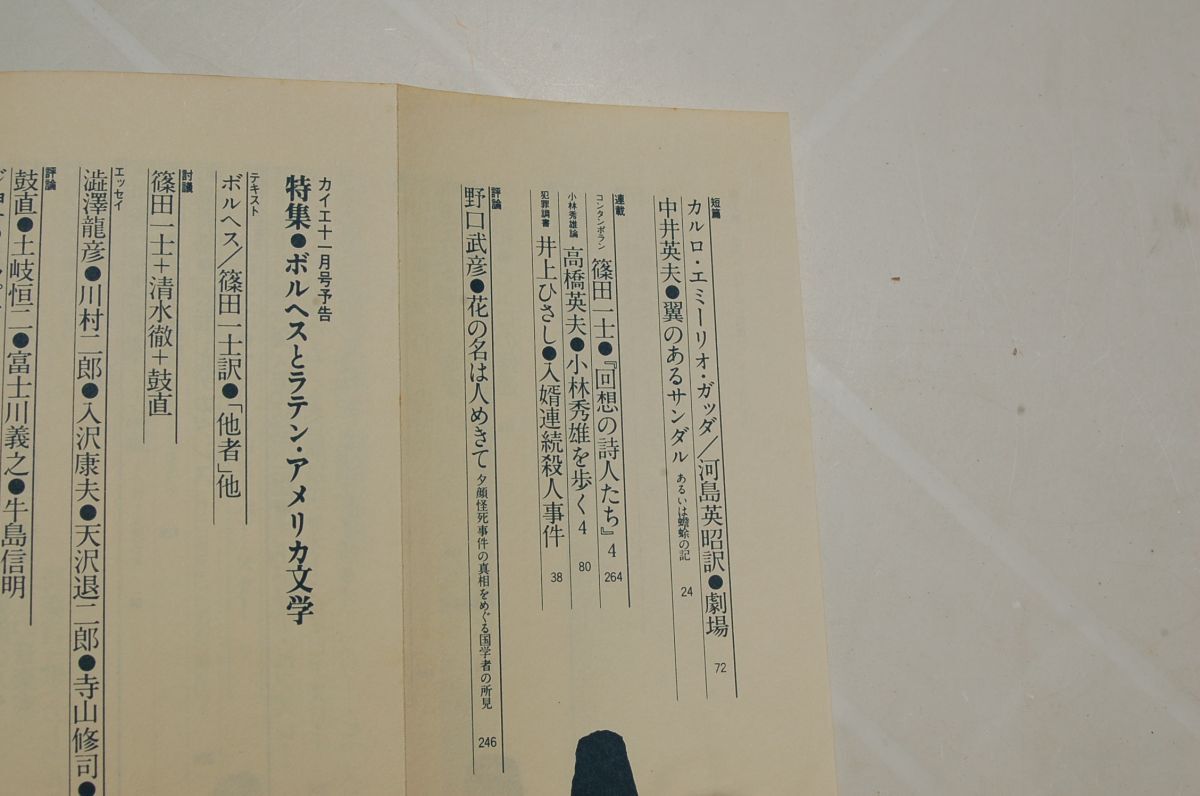 短篇
カルロ・エミーリオ・ガッダ／河島英昭訳●劇場 72
中井英夫●翼のあるサンダル あるいは蟾蜍の記 24
連載
コンタンポラン 篠田一士●『回想の詩人たち』4 264
小林秀雄論 高橋英夫●小林秀雄を歩く 4 80
犯罪調書 井上ひさし●入婿連続殺人事件 38
評論
野口武彦●花の名は人めきて 夕顔怪死事件の真相をめぐる国学者の所見 246
カイエ十一月号予告
特集●ボルヘスとラテン・アメリカ文学
テキスト
ボルヘス／篠田一士訳●「他者」他
討議
篠田一士＋清水徹＋鼓直
エッセイ
澁澤龍彦●川村二郎●入沢康夫●天沢退二郎●寺山修司●
評論
鼓直●土岐恒二●富士川義之●牛島信明